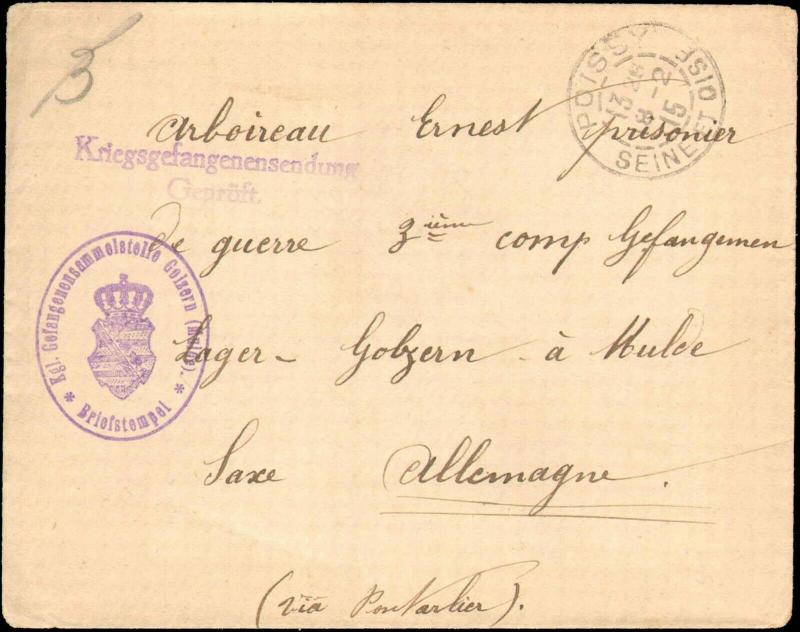 3
POISSY SEINE ET OISE
13 45
8 - 2
15
Arboireau Ernest prisonier
Kriegsgefangenensendung
Geprüft.
De guerre 3ième comp Gefangemen
Kgl. Gefangenensammelstelle Golzern (Mulde). * Briefstempel *
Lager - Gobzern - à Mulde
Saxe Allemagne.
(via Pontarlier).